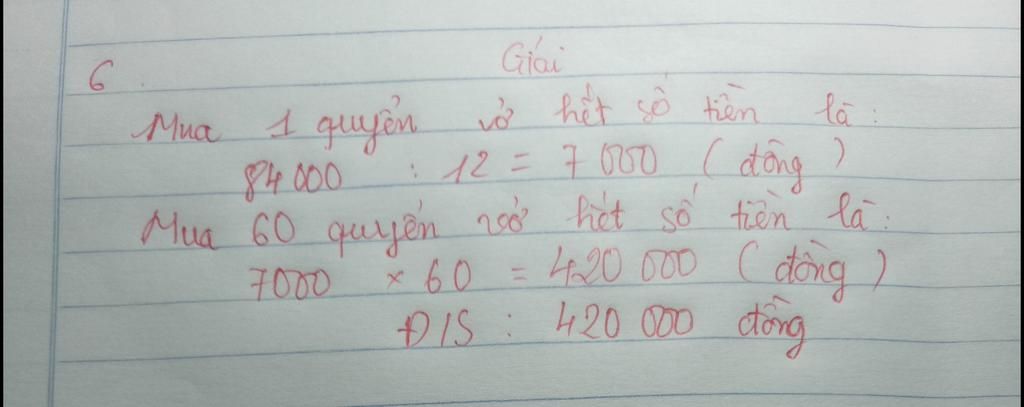 6. Giải
Mua 1 quyển vở hết số tiền là:
84000 : 12 = 7 000 (đồng)
Mua 60 quyển vở hết số tiền là:
7000 × 60 = 420 000 (đồng)
Đ/S: 420 000 đồng